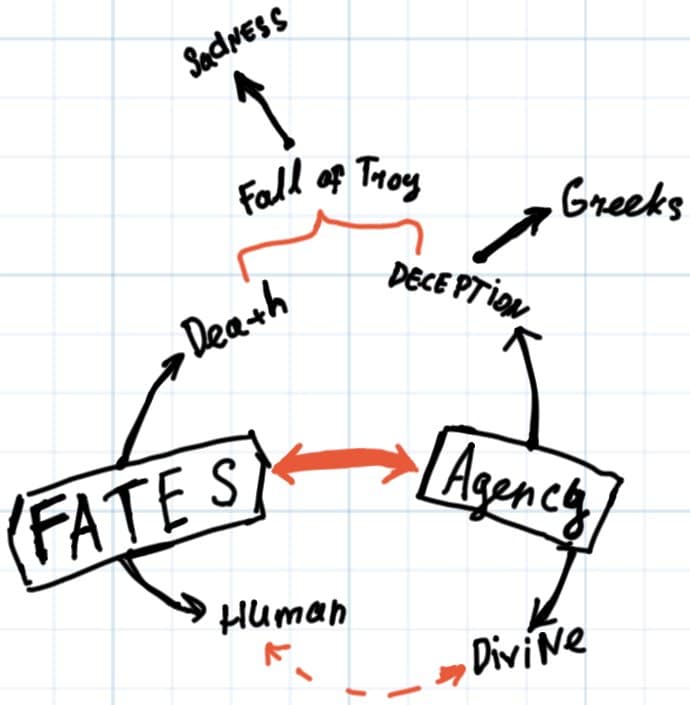 SadNESS
Fall of Troy
Greeks
DECEPTiON
Death
FATES
Agency
Human
DiviNe